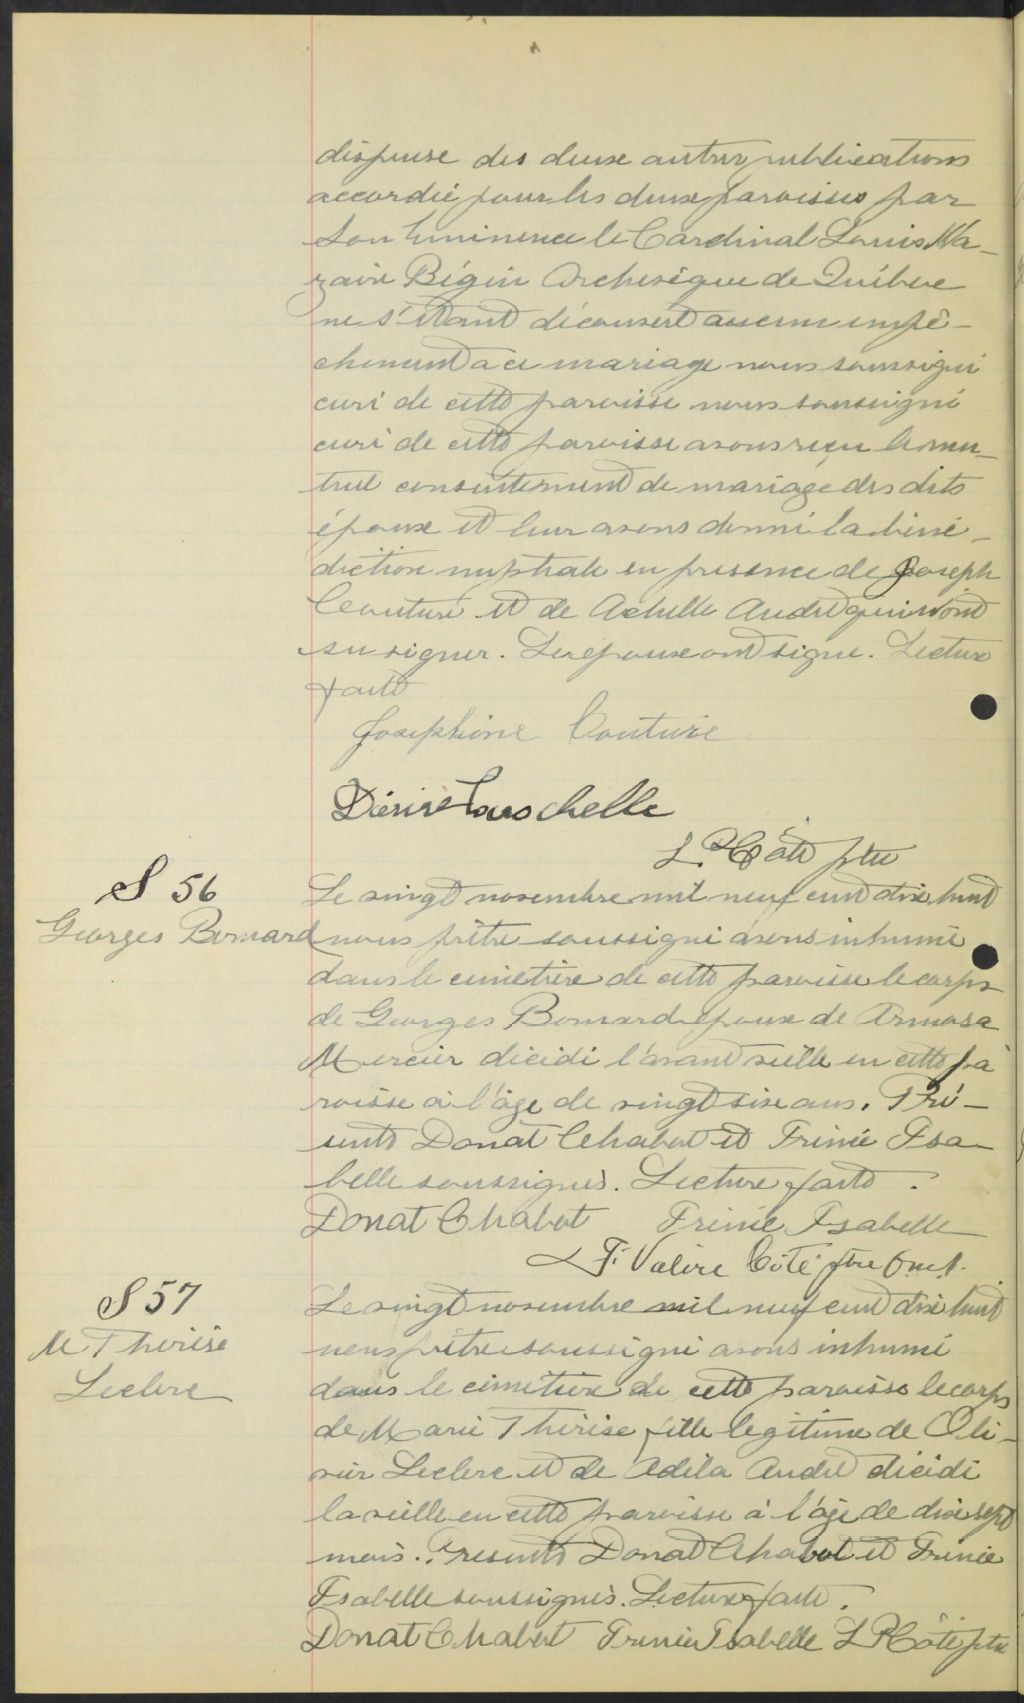 dispense des deux autres publications
accordée pour les deux paroisses par
Son Eminence le Cardinal Louis Na-
zaire Bégin Archevêque de Québec
ne s'étant découvert aucun empê-
chement à ce mariage nous soussigné
curé de cette paroisse nous soussigné
curé de cette paroisse avons reçu le mu-
tuel consentement de mariage des dits
époux et leur avons donné la béné-
diction nuptiale en presence de Joseph
Couture et de Achille Audet qui n'ont
su signer. Les époux ont signé. Lecture
faite
Josephine Couture
Désiré Larochelle
L. P. Côté ptre
S 56
Georges Bernard
Le vingt novembre mil neuf cent dix huit
nous prêtre soussigné avons inhumé
dans le cimetière de cette paroisse le corps
de Georges Bernard époux de Armosa
Mercier décédé l'avant veille en cette pa
roisse à l'âge de vingt six ans. Pré-
sents Donat Chabot et Frénié Isa-
belle soussignés. Lecture faite.
Donat Chabot Frénié Isabelle
J. Valère Côté ptre
S 57
M. Thérèse
Leclerc
Le vingt novembre mil neuf cent dix huit
nous prêtre soussigné avons inhumé
dans le cimetière de cette paroisse le corps
de Marie Thérèse fille legitime de Oli-
vier Leclerc et de Adéla Audet décédé
la veille en cette paroisse à l'âge de dix sept
mois. Presents Donat Chabot et Frénié
Isabelle soussignés. Lecture faite.
Donat Chabot Frénié Isabelle L. P. Côté ptre